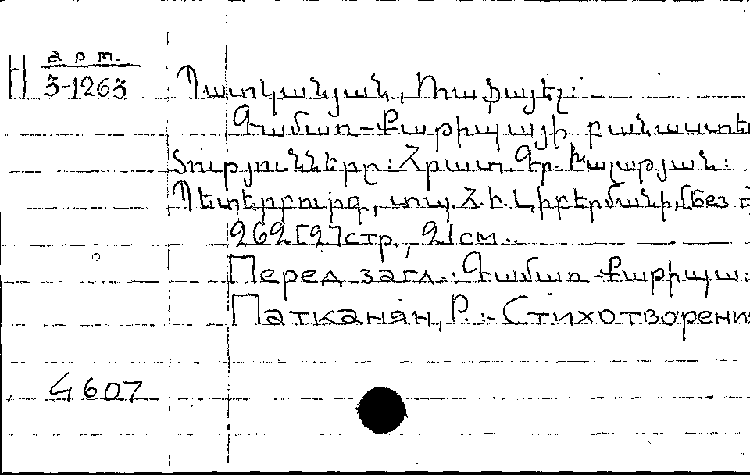 Н арт.
3-1263
Պատկանյան, Ռաֆայել:
Գամառ-Քաթիպայի բանաստե
ծությունները: Հրատ. Գր. Խալաթյան:
Պետերբուրգ, տպ. Հ. Ի. Լիբերմանի, [без
262 [2] стр., 21 см.
Перед загл.: Գամառ Քաթիպա.
Патканян, Р. - Стихотворени
4607